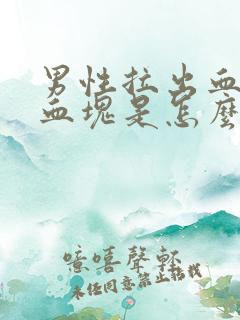 男性拉出血
血塊是怎麼
噫嘻聲軒
未经同意禁止搭载